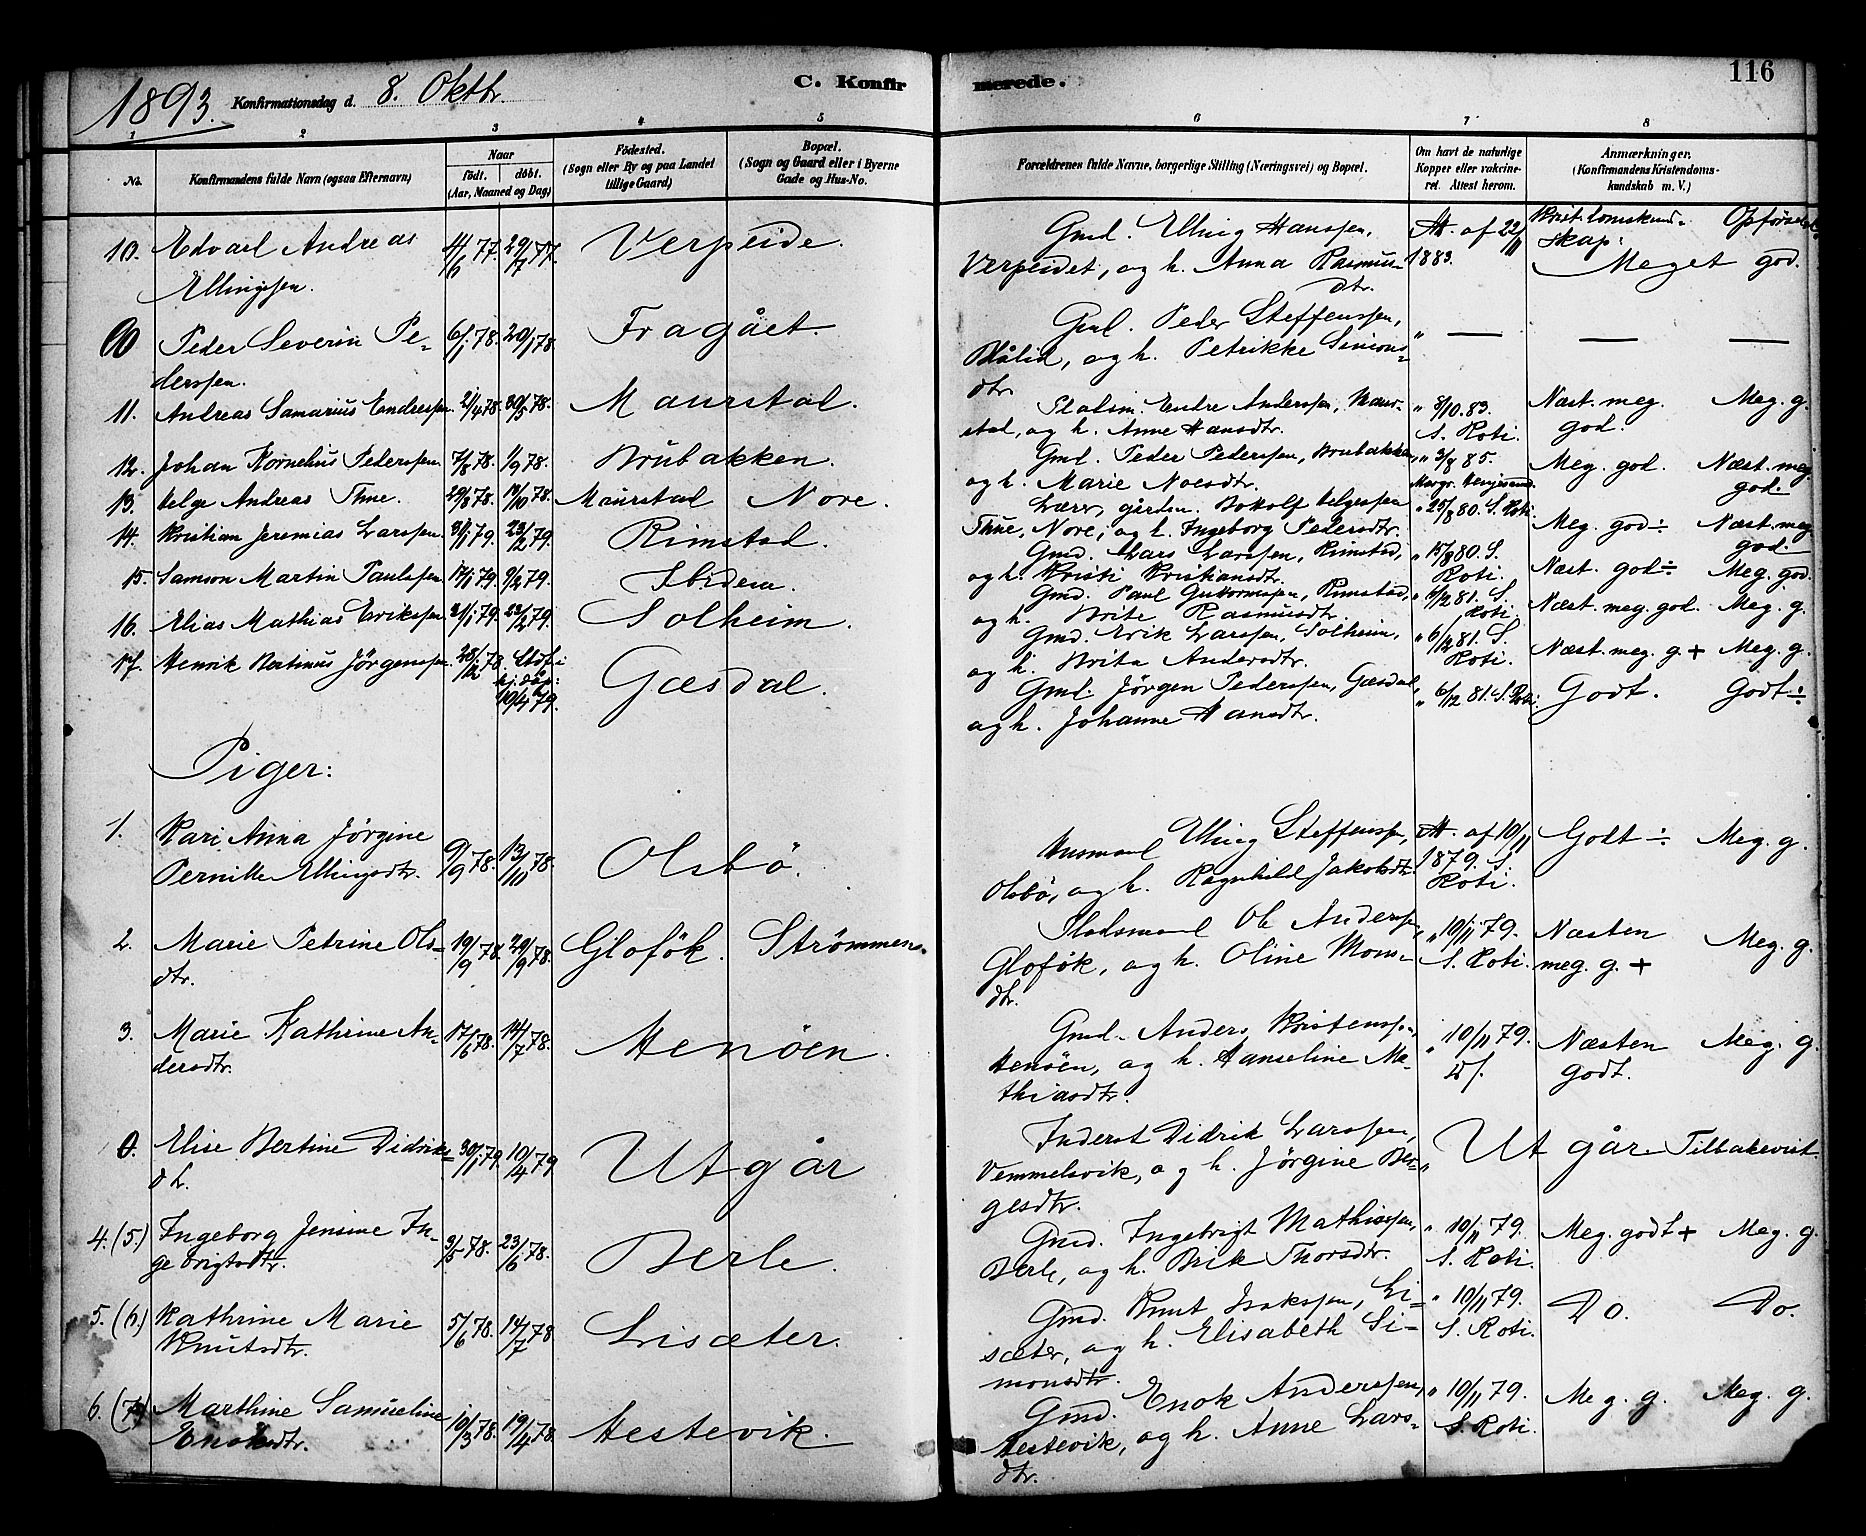 1893. Konfirmationsdag d. 8. Oktbr. C. Konfirmerede. 116
1 2 3 4 5 6 7 8
No. Konfirmandens fulde Navn (ogsaa Efternavn) Naar født. døbt. (Aar, Maaned og Dag) Fødested. (Sogn eller By og paa Landet tillige Gaard) Bopæl. (Sogn og Gaard eller i Byerne Gade og Hus-No. Forældrenes fulde Navne, borgerlige Stilling (Næringsvei) og Bopæl. Om havt de naturlige Kopper eller vakcineret. Attest herom. Anmærkninger. (Konfirmandens Kristendomskundskab m. V.)
Kristdomskundskap: Opførsel
10. Edvard Andreas 4/6 77. 29/7 77. Verpeide. Gmd. Elling Hanssen, Att. af 22/11
Ellingssen. Verpeidet, og h. Anna Rasmusdtr. 1883. Meget god.
Peder Severin Pe- 6/1 78. 20/1 78. Fragået. Gmd. Peder Steffenssen, " — — —
derssen. Blålid, og h. Petrikke Simonsdtr.
11. Andreas Samarius Endressen. 21/4 78. 30/5 78. Maurstad. Pladsm. Endre Anderssen, Maur- " 8/10. 83. Næst. meg. Meg. g.
stad, og h. Anne Hansdtr. S. Roti. god.
12. Johan Kornelius Pederssen. 7/8 78. 1/9 78. Brubakken. Gmd. Peder Pederssen, Brubakken, " 3/8 85. Meg. god. Næst. meg.
og h. Marie Noesdtr. god.
13. Helge Andreas Thue. 29/8 78. 19/10 78. Maurstad Nore. Lærer, Botolf Helgessen " 25/8 80. S. Roti. Meg. god ÷ Næst. meg.
Thue, Nore, og h. Ingeborg Pedersdtr. god.
14. Kristian Jeremias Larssen. 31/1 79. 23/2 79. Rimstad. Gmd. Lars Larssen, Rimstad, " 15/8 80. S. Næst. god ÷. Meg. god.
og h. Kristi Kristiansdtr. Roti.
15. Samson Martin Paulssen 17/1 79. 9/2 79. Ibidem. Gmd. Paul Guttormssen, Rimstad, " 6/12 81. S. Næst. meg. god. Meg. g.
og h. Brite Rasmusdtr. Roti.
16. Elias Mathias Erikssen. 21/1 79. 23/2 79. Solheim. Gmd. Erik Larssen, Solheim, " 6/12 81. S. Næst. meg. g + Meg. g.
og h. Brita Andersdtr. Roti.
17. Henrik Bertinus Jørgenssen. 28/12 78. Stadf: hj. dåp: 19/4 79. Gæsdal. Gmd. Jørgen Pederssen, Gæsdal, " 6/12 81. S. Roti. Godt. Godt ÷
og h. Johanne Hansdtr.
Piger:
1. Kari Anna Jørgine 9/9 78. 13/10 78. Olsbö. Husmand Elling Steffenssen, Att. af 10/11 Godt ÷. Meg. g.
Pernille Ellingsdtr. Olsbö, og h. Ragnhild Jakobsdtr. 1879. S. Roti.
2. Marie Petrine Ols- 19/9 78. 29/9 78. Gloføk. Strömmen. Pladsmand Ole Anderssen, " 10/11 79. Næsten Meg. g.
dtr. Gloføk, og h. Oline Mons- S. Roti. meg. g. +
dtr.
3. Marie Kathrine An- 17/6 78. 14/7 78. Henöen. Gmd. Anders Kristenssen, " 10/11 79. Næsten Meg. g.
dersdtr. Henöen, og h. Hanseline Ma- godt.
thiasdtr.
0. Elise Bertine Didriks- 30/1 79. 10/4 79 Utgår Inderst Didrik Larssen, " Utgår. Tilbakevist.
dt. Vemmelsvik, og h. Jørgine Bør-
gesdtr.
4. (5.) Ingeborg Jensine In- 3/5 78. 23/6 78. Berle. Gmd. Ingebrigt Mathiassen, " 10/11 79. Meg. godt + Meg. g.
gebrigtsdtr. Berle, og h. Brite Thorsdtr. S. Roti.
5. (6.) Kathrine Marie 5/6 78. 14/7 78 Lisæter. Gmd. Knut Isakssen, Li- " 10/11 79. Do. Do.
Knutsdtr. sæter, og h. Elisabeth Si- S. Roti.
monsdtr.
6. (7.) Marthine Samueline 10/3 78. 19/4 78. Hestevik. Gmd. Enok Anderssen, " 10/11 79. Meg. g. Meg. g.
Enoksdtr. Hestevik, og h. Anne Lars- S. Roti.
dtr.